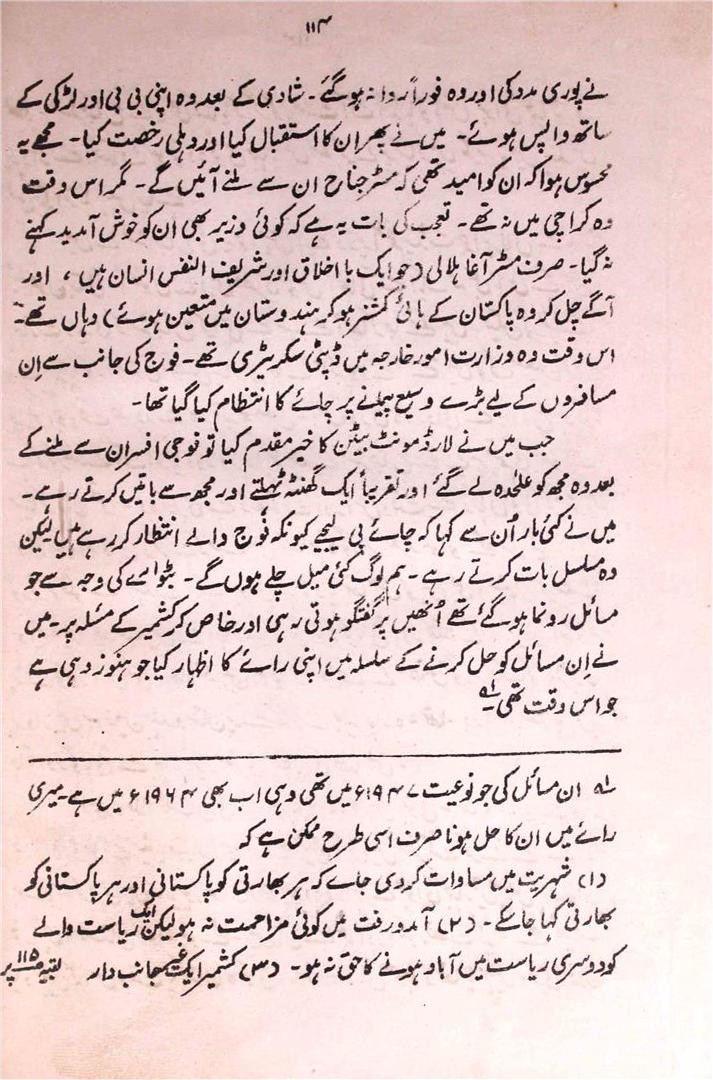 ۱۱۴
نے پوری مدد کی اور وہ فوراً روانہ ہو گئے۔ شادی کے بعد وہ اپنی بی بی اور لڑکی کے
ساتھ واپس ہوئے۔ میں نے پھر ان کا استقبال کیا اور دہلی رخصت کیا۔ مجھے یہ
محسوس ہوا کہ ان کو امید تھی کہ مسٹر جناح ان سے ملنے آئیں گے۔ مگر اس وقت
وہ کراچی میں نہ تھے۔ تعجب کی بات یہ ہے کہ کوئی وزیر بھی ان کو خوش آمدید کہنے
نہ گیا۔ صرف مسٹر آغا ہلالی (جو ایک با اخلاق اور شریف النفس انسان ہیں، اور
آگے چل کر وہ پاکستان کے ہائی کمشنر ہو کر ہندوستان میں متعین ہوئے) وہاں تھے۔
اس وقت وہ وزارت امور خارجہ میں ڈپٹی سکریٹری تھے۔ فوج کی جانب سے اِن
مسافروں کے لیے بڑے وسیع پیمانے پر چائے کا انتظام کیا گیا تھا۔
جب میں نے لارڈ مونٹ بیٹن کا خیر مقدم کیا تو فوجی افسران سے ملنے کے
بعد وہ مجھ کو علٰحدہ لے گئے اور تقریباً ایک گھنٹہ ٹہلتے اور مجھ سے باتیں کرتے رہے۔
میں نے کئی بار اُن سے کہا کہ چائے پی لیجیے کیونکہ فوج والے انتظار کر رہے ہیں لیکن
وہ مسلسل بات کرتے رہے۔ ہم لوگ کئی میل چلے ہوں گے۔ بٹوارے کی وجہ سے جو
مسائل رونما ہو گئے تھے اُنھیں پر گفتگو ہوتی رہی اور خاص کر کشمیر کے مسئلہ پر۔ میں
نے اِن مسائل کو حل کرنے کے سلسلہ میں اپنی رائے کا اظہار کیا جو ہنوز وہی ہے
جو اس وقت تھی۔ لہ
لہ ان مسائل کی جو نوعیت ۱۹۴۷ء میں تھی وہی اب بھی ۱۹۶۴ء میں ہے۔ میری
رائے میں ان کا حل ہونا صرف اسی طرح ممکن ہے کہ
(۱) شہریت میں مساوات کر دی جائے کہ ہر بھارتی کو پاکستانی اور ہر پاکستانی کو
بھارتی کہا جا سکے۔ (۲) آمد و رفت میں کوئی مزاحمت نہ ہو لیکن ایک ریاست والے
کو دوسری ریاست میں آباد ہونے کا حق نہ ہو۔ (۳) کشمیر ایک غیر جانب دار بقیہ ص ۱۱۵ پر